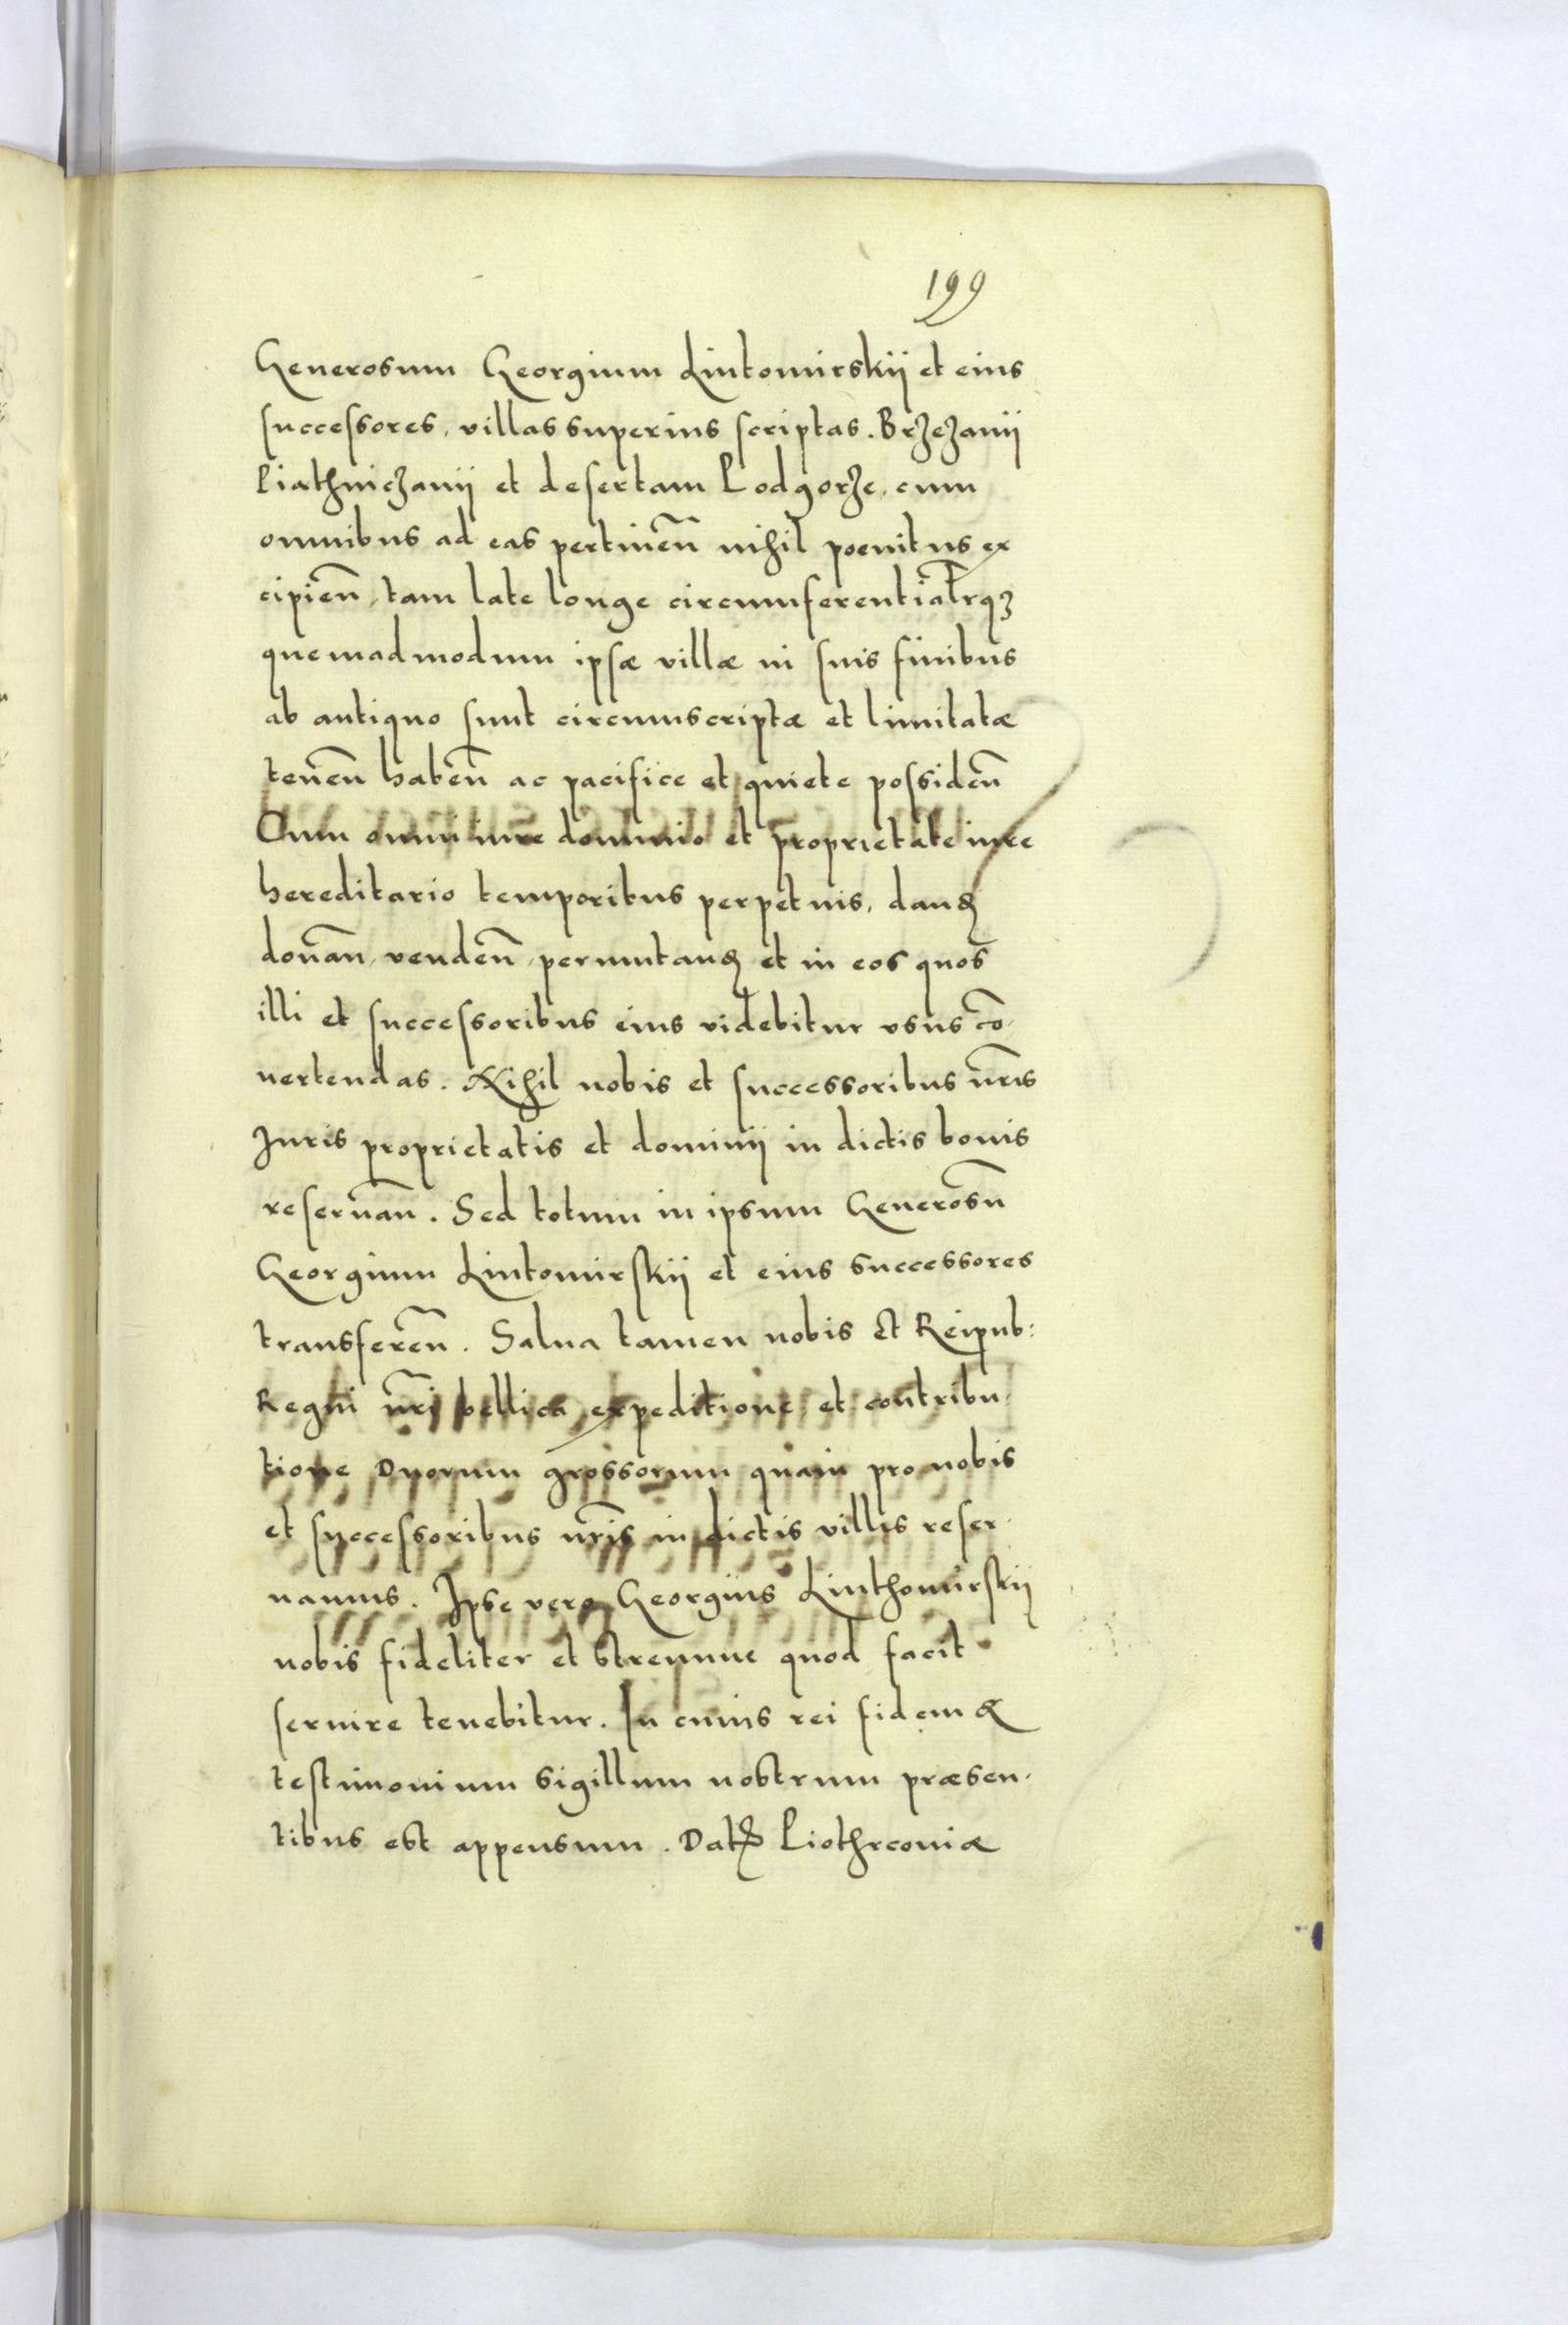 199
Generosum Georgium Lintomirskij et eius
successores, villas superius scriptas. Brzezanij
Piathniczanij et desertam Podgorze, cum
omnibus ad eas pertineñ nihil poenitus ex
cipieñ, tam late longe circumferentialr̃qȝ
quemadmodum ipsæ villæ in suis finibus
ab antiquo sunt circumscriptæ et limitatæ
teneñ habeñ ac pacifice et quiete possideñ
Cum omni iure dominio et proprietate iure
hereditario temporibus perpetuis, dand
donañ, vendeñ, permutand et in eos quos
illi et successoribus eius videbitur vsus cõ
uertendas. Nihil nobis et successoribus nr̃is
Iuris proprietatis et dominij in dictis bonis
reseruañ. Sed totum in ipsum Generosũ
Georgium Lintomirskij et eius successores
transfereñ. Salua tamen nobis et Reipub:
Regni nr̃i bellica expeditione, et contribu
tione Duorum grossorum quam pro nobis
et successoribus nr̃is in dictis villis reser
uamus. Ipse vero Georgius Linthomirskij
nobis fideliter et strennue quod facit
seruire tenebitur. In cuius rei fidem &
testimonium sigillum nostrum præsen
tibus est appensum. Dat Piothrcouiæ